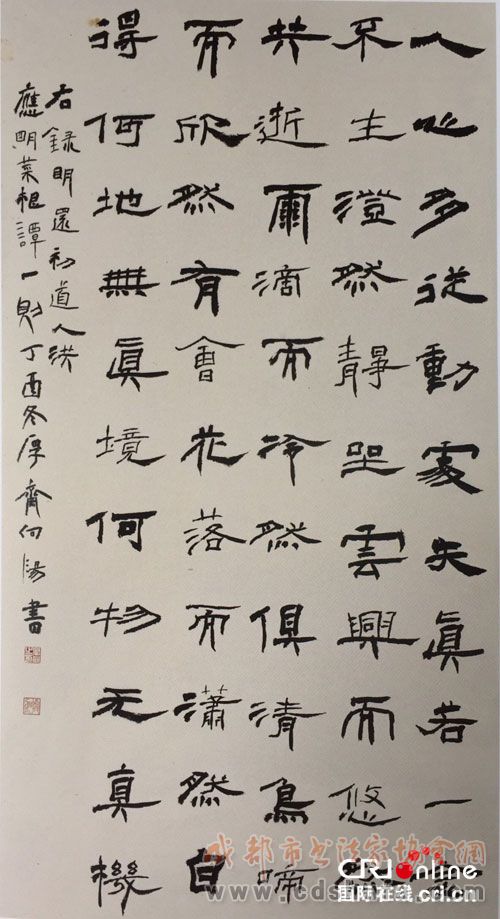 人心多從動處失眞若一念
不生澄然靜坐雲興而悠然
共逝雨滴而冷然俱清鳥啼
而欣然有會花落而瀟然自
得何地無眞境何物无真機
右録明還初道人洪
應明菜根譚一則丁酉冬厚齋向陽書
成都市书法家协会網
CRI online
国际在线 cri.cn